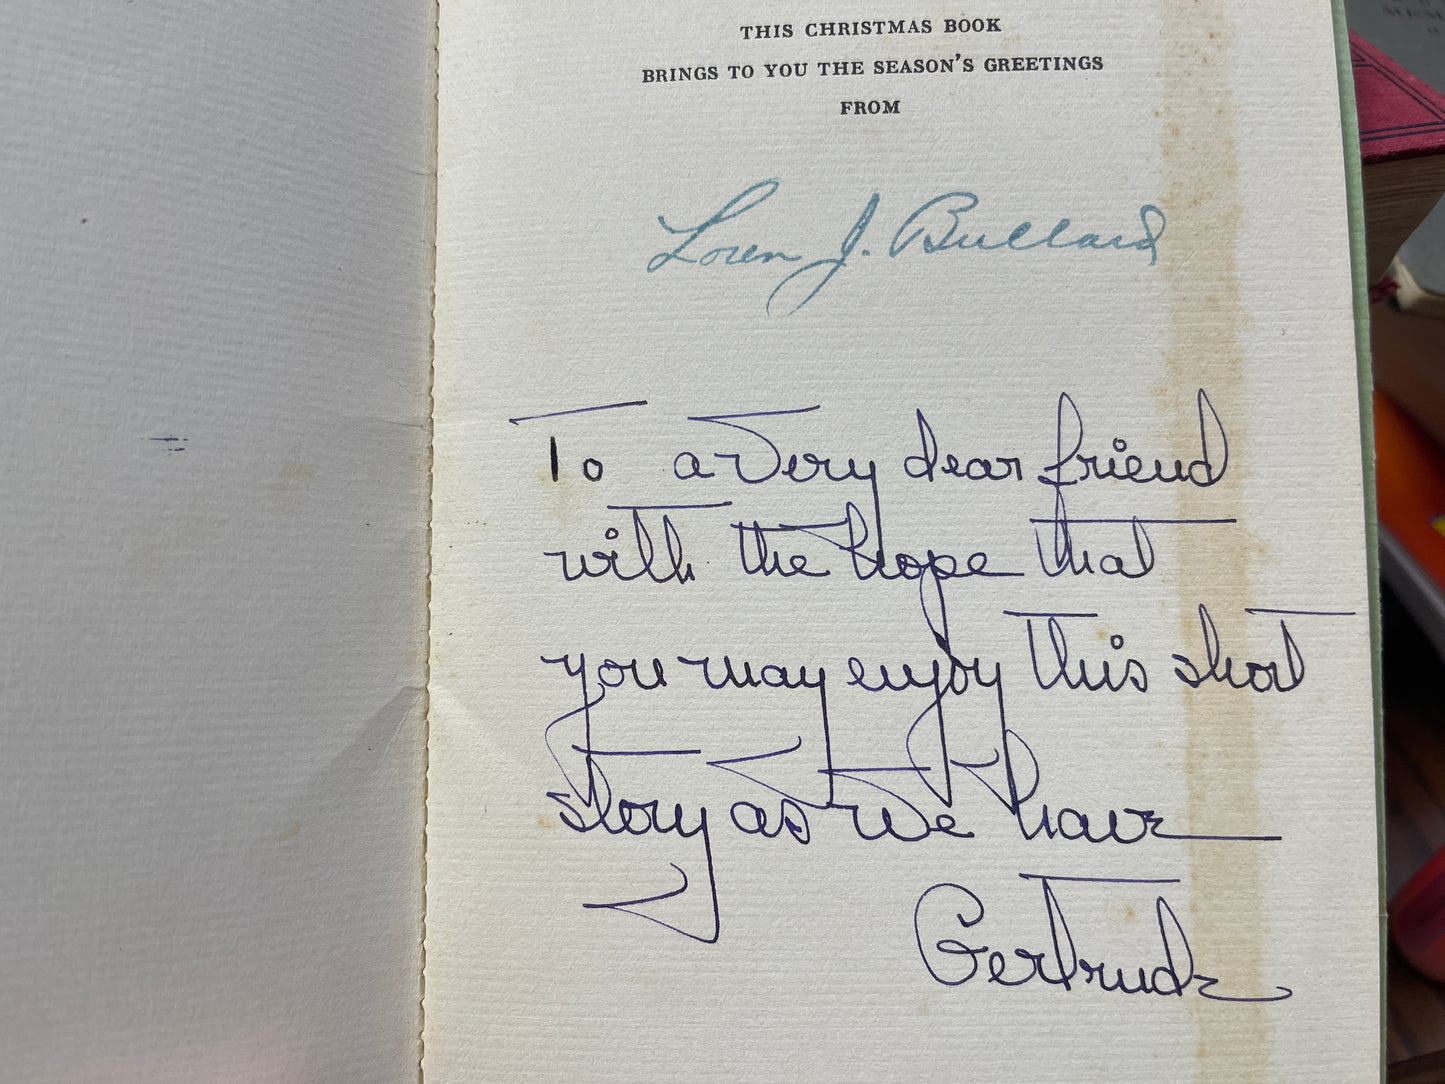 THIS CHRISTMAS BOOK
BRINGS TO YOU THE SEASON'S GREETINGS
FROM
Loren J. Bullard
To a very dear friend
with the hope that
you may enjoy this short
story as we have
Gertrude